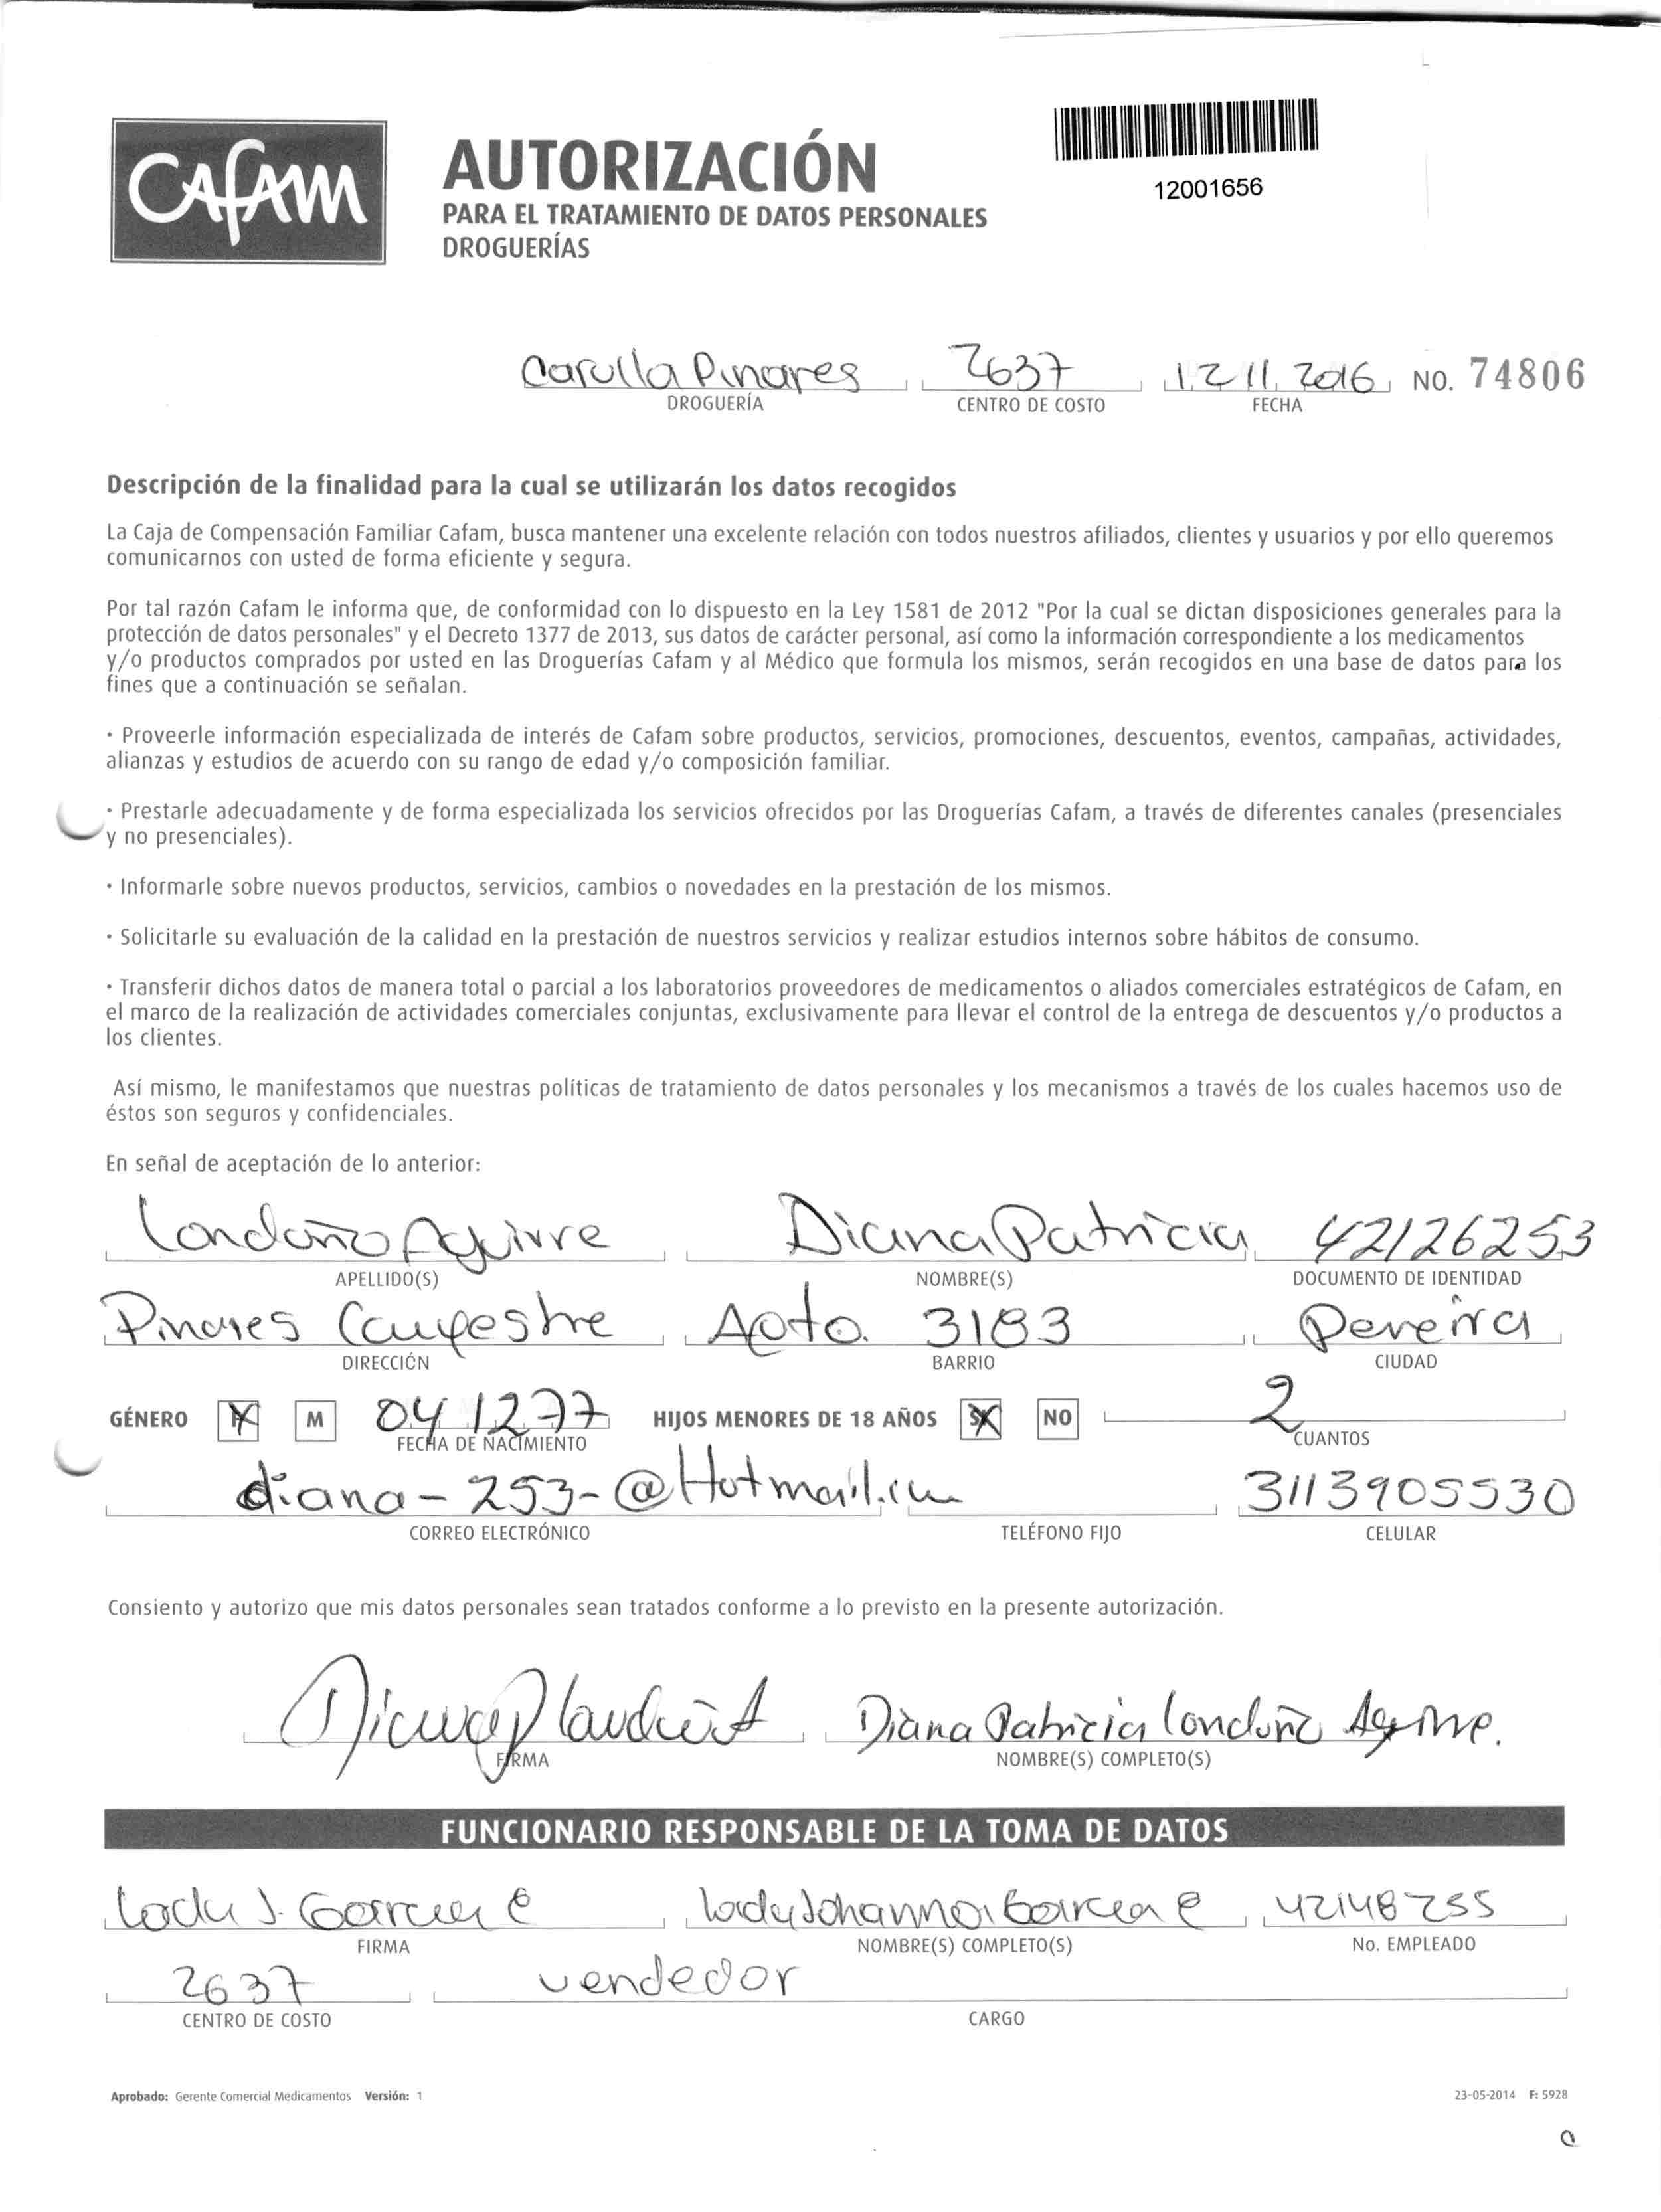 CAFAM
AUTORIZACIÓN
PARA EL TRATAMIENTO DE DATOS PERSONALES
DROGUERÍAS
12001656
Carulla Pinares 2637 12 11 2016 NO. 74806
DROGUERÍA CENTRO DE COSTO FECHA
Descripción de la finalidad para la cual se utilizarán los datos recogidos
La Caja de Compensación Familiar Cafam, busca mantener una excelente relación con todos nuestros afiliados, clientes y usuarios y por ello queremos
comunicarnos con usted de forma eficiente y segura.
Por tal razón Cafam le informa que, de conformidad con lo dispuesto en la Ley 1581 de 2012 "Por la cual se dictan disposiciones generales para la
protección de datos personales" y el Decreto 1377 de 2013, sus datos de carácter personal, así como la información correspondiente a los medicamentos
y/o productos comprados por usted en las Droguerías Cafam y al Médico que formula los mismos, serán recogidos en una base de datos para los
fines que a continuación se señalan.
· Proveerle información especializada de interés de Cafam sobre productos, servicios, promociones, descuentos, eventos, campañas, actividades,
alianzas y estudios de acuerdo con su rango de edad y/o composición familiar.
· Prestarle adecuadamente y de forma especializada los servicios ofrecidos por las Droguerías Cafam, a través de diferentes canales (presenciales
y no presenciales).
· Informarle sobre nuevos productos, servicios, cambios o novedades en la prestación de los mismos.
· Solicitarle su evaluación de la calidad en la prestación de nuestros servicios y realizar estudios internos sobre hábitos de consumo.
· Transferir dichos datos de manera total o parcial a los laboratorios proveedores de medicamentos o aliados comerciales estratégicos de Cafam, en
el marco de la realización de actividades comerciales conjuntas, exclusivamente para llevar el control de la entrega de descuentos y/o productos a
los clientes.
Así mismo, le manifestamos que nuestras políticas de tratamiento de datos personales y los mecanismos a través de los cuales hacemos uso de
éstos son seguros y confidenciales.
En señal de aceptación de lo anterior:
Londoño Aguirre Diana Patricia 42126253
APELLIDO(S) NOMBRE(S) DOCUMENTO DE IDENTIDAD
Pinares Campestre Apto. 3183 Pereira
DIRECCIÓN BARRIO CIUDAD
GÉNERO F M 04 12 77 HIJOS MENORES DE 18 AÑOS SI NO 2
FECHA DE NACIMIENTO CUANTOS
diana-253-@Hotmail.com 3113905530
CORREO ELECTRÓNICO TELÉFONO FIJO CELULAR
Consiento y autorizo que mis datos personales sean tratados conforme a lo previsto en la presente autorización.
Diana Patricia Londoño Aguirre.
FIRMA NOMBRE(S) COMPLETO(S)
FUNCIONARIO RESPONSABLE DE LA TOMA DE DATOS
Lady J. Garcia C Lady Johanna Garcia C 42148255
FIRMA NOMBRE(S) COMPLETO(S) No. EMPLEADO
2637 vendedor
CENTRO DE COSTO CARGO
Aprobado: Gerente Comercial Medicamentos Versión: 1 23-05-2014 F: 5928